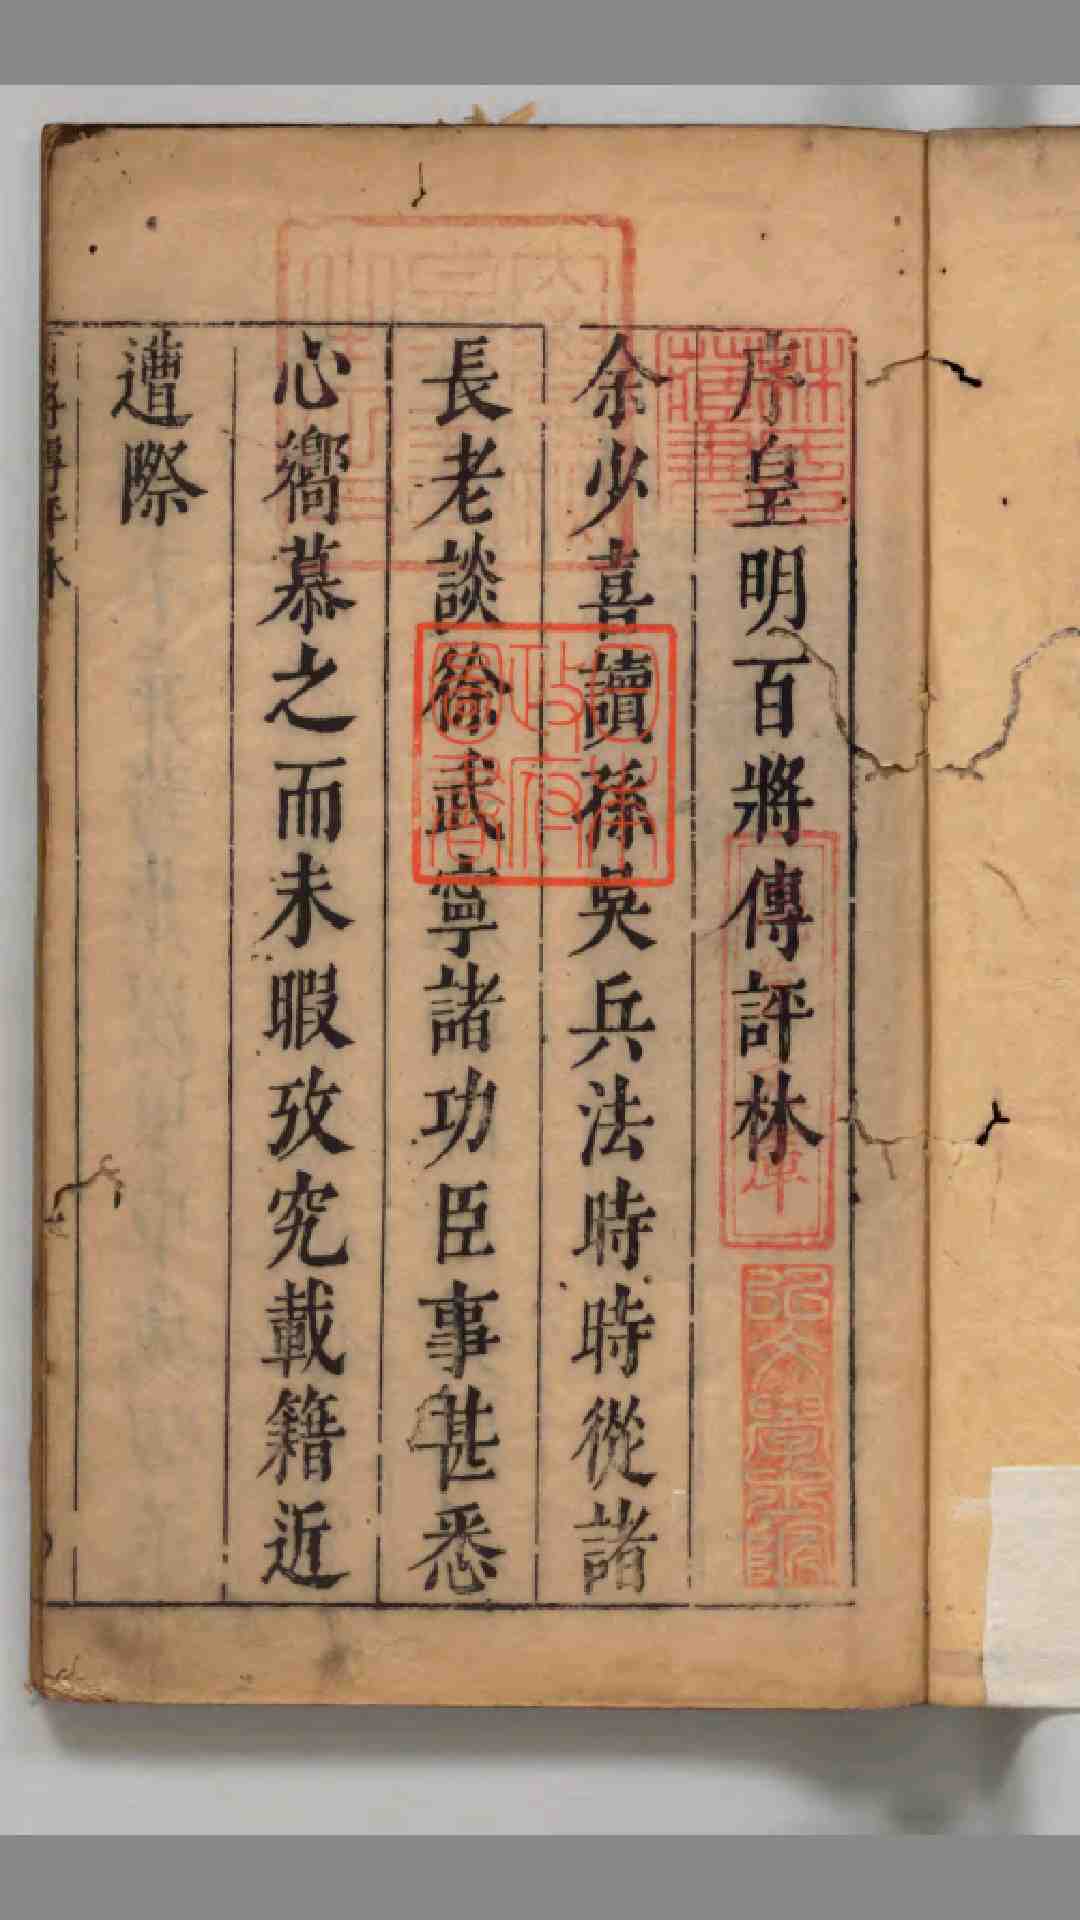 序皇明百將傳評林
余少喜讀孫吳兵法時時從諸
長老談徐武寧諸功臣事甚悉
心嚮慕之而未暇攷究載籍近
遭際
將傳評林
林氏藏書
日本政府圖書